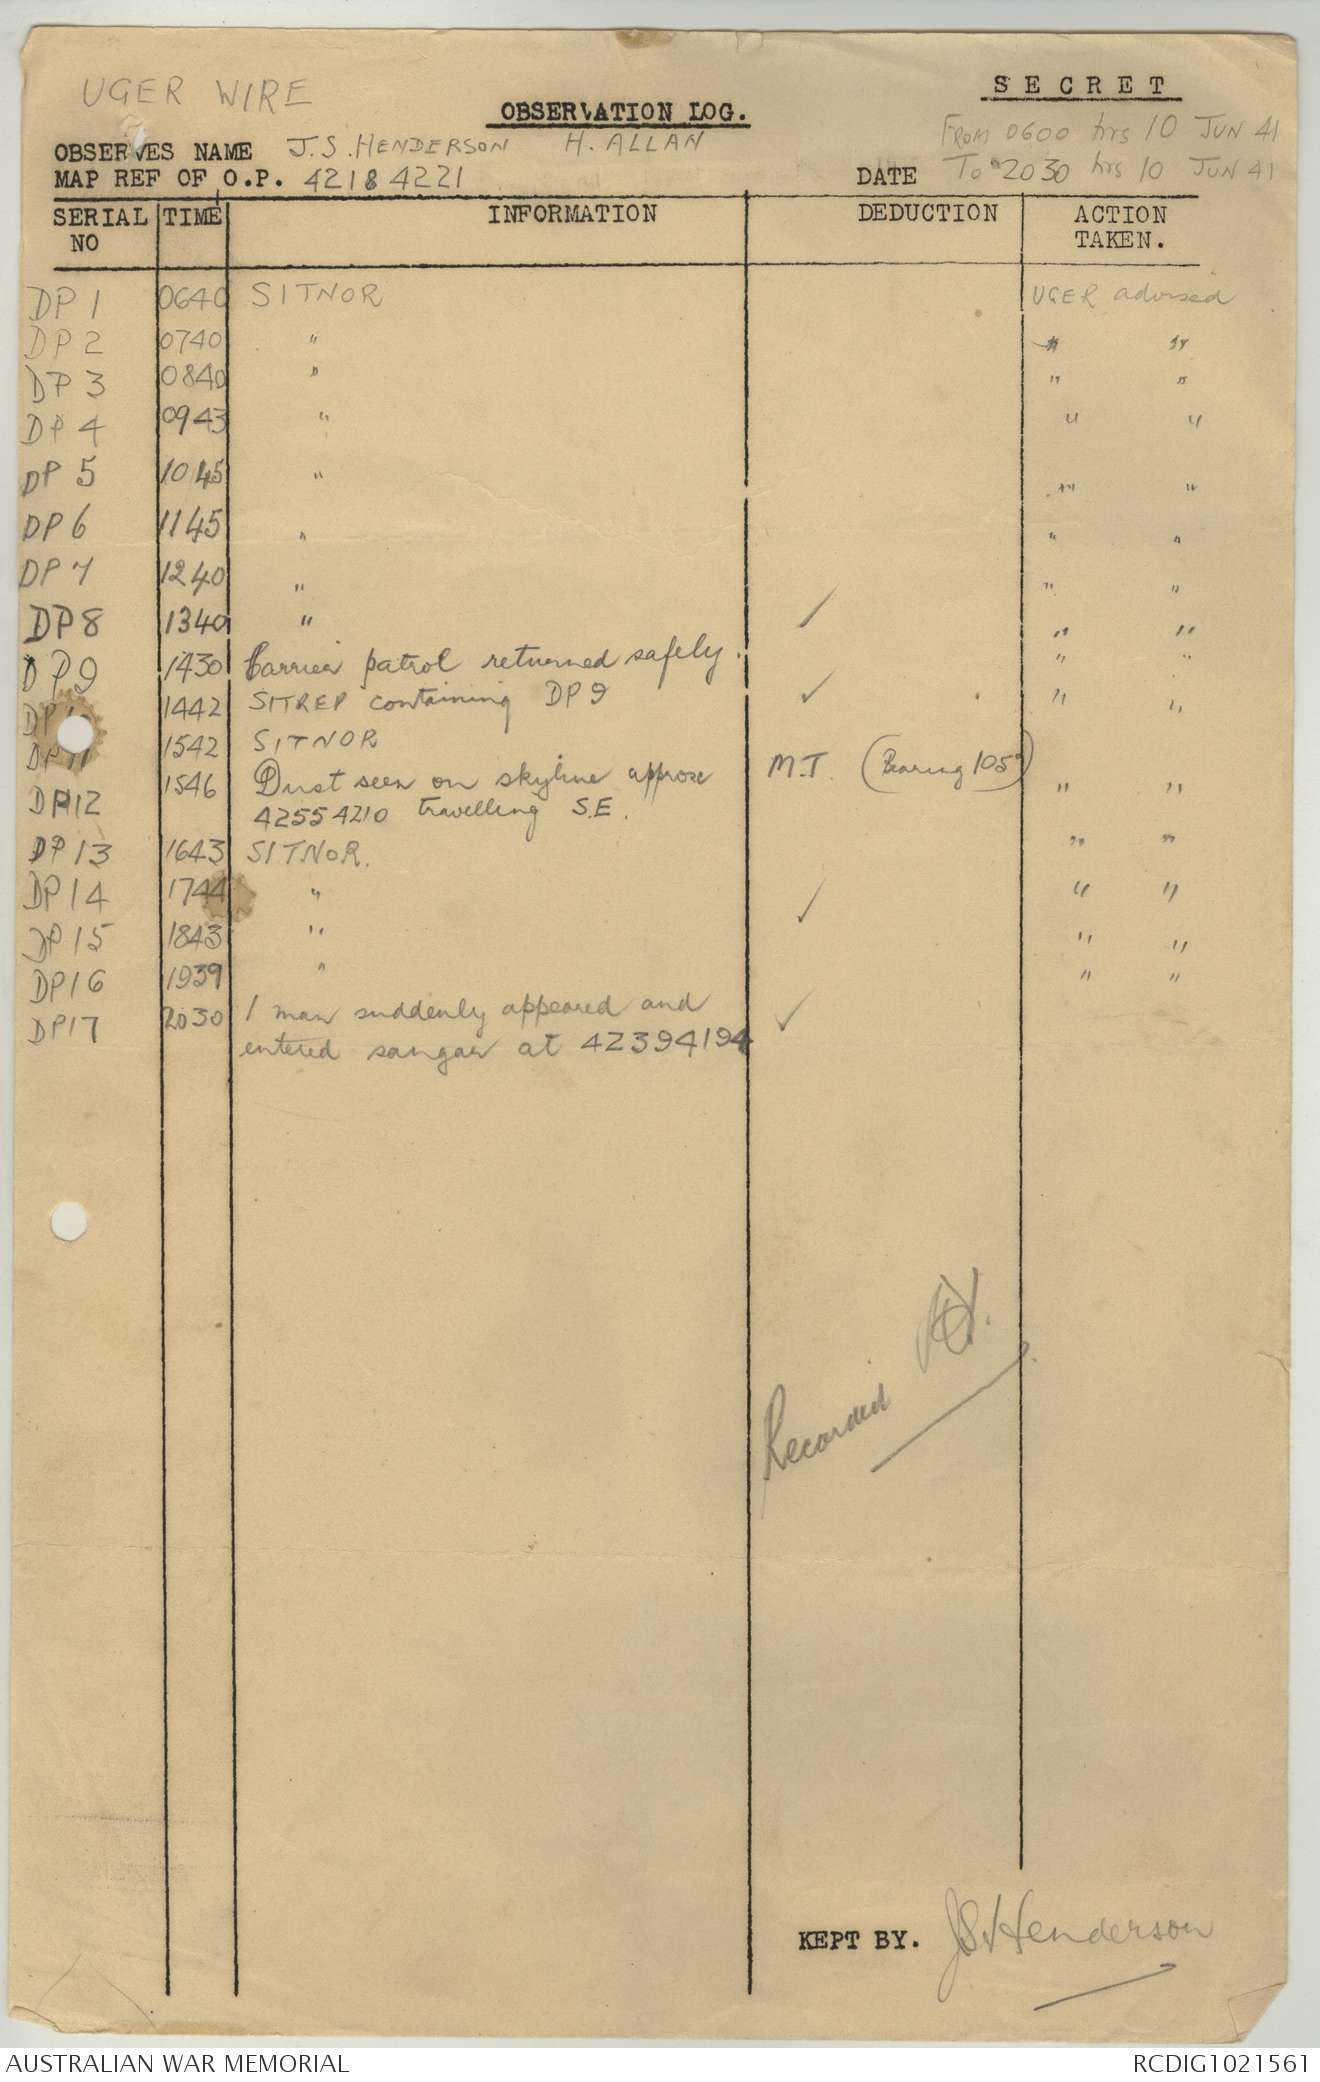 UGER WIRE
SECRET
OBSERVATION LOG.
FROM 0600 hrs 10 JUN 41
OBSERVES NAME J.S. HENDERSON H. ALLAN
MAP REF OF O.P. 42184221 DATE To 2030 hrs 10 JUN 41
SERIAL NO TIME INFORMATION DEDUCTION ACTION TAKEN.
DP 1 0640 SITNOR UGER advised
DP 2 0740 " " "
DP 3 0840 " " "
DP 4 0943 " " "
DP 5 1045 " " "
DP 6 1145 " " "
DP 7 1240 " " "
DP 8 1340 " ✓ " "
DP 9 1430 Carrier patrol returned safely. " "
DP 1442 SITREP containing DP 9 ✓ " "
DP 11 1542 SITNOR
DP 12 1546 Dust seen on skyline approx M.T. (Bearing 105°) " "
42554210 travelling S.E.
DP 13 1643 SITNOR. " "
DP 14 1744 " ✓ " "
DP 15 1843 " " "
DP 16 1939 " " "
DP 17 2030 1 man suddenly appeared and ✓
entered sangar at 42394194
Recorded
KEPT BY. JSHenderson
AUSTRALIAN WAR MEMORIAL RCDIG1021561